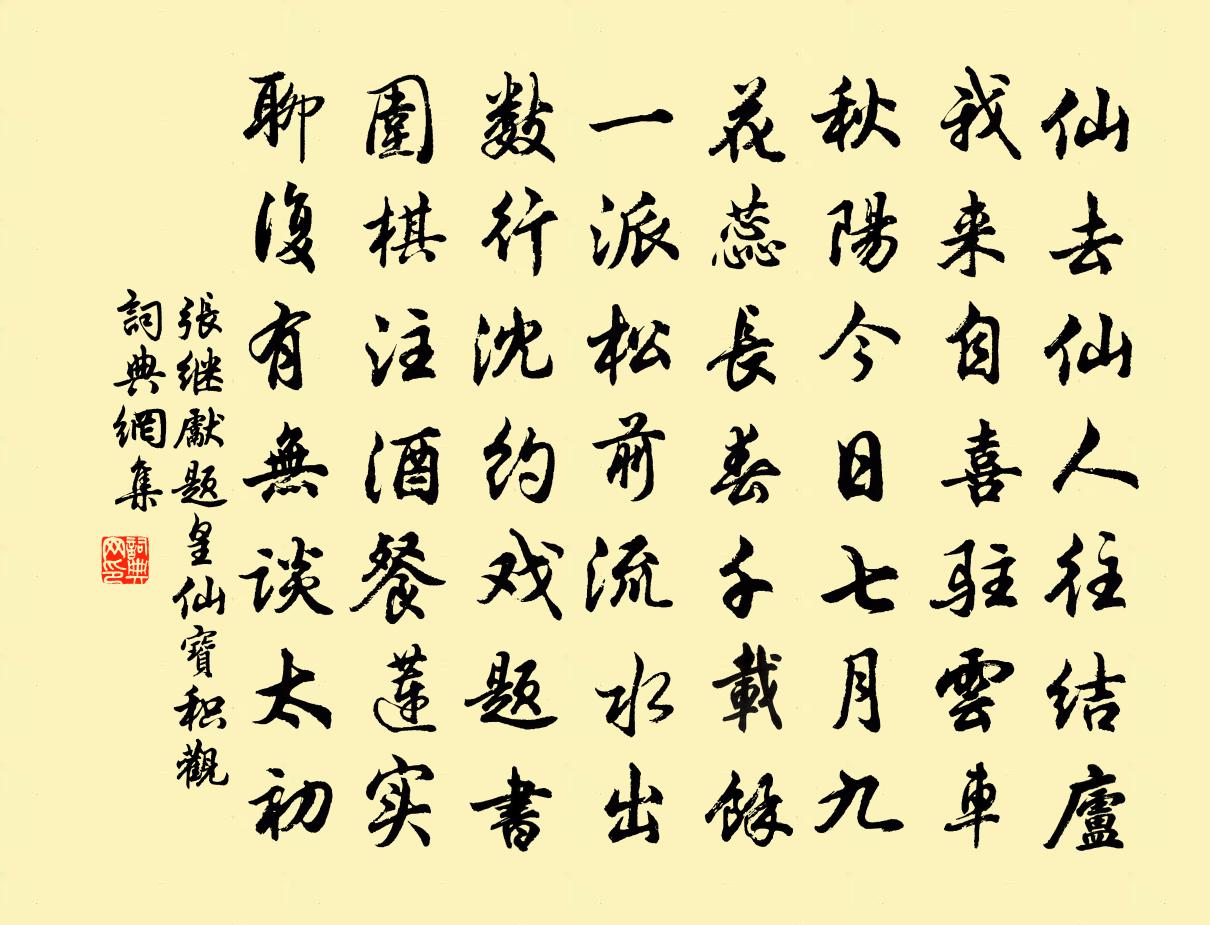 仙去仙人往结廬
我来自喜駐雲車
秋陽今日七月九
花蕊長春千載餘
一派松前流水出
数行沈约戏题書
圍棋注酒餐蓮实
聊復有無谈太初
張继獻题皇仙寶积觀
詞典網集
詞典网印